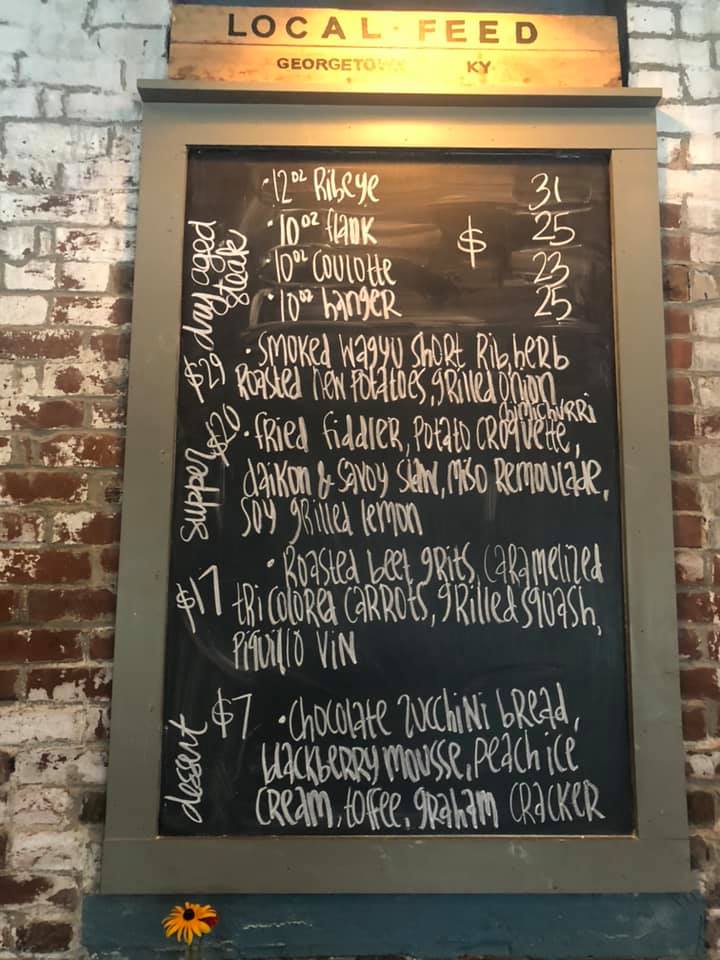 LOCAL FEED
GEORGETOWN KY
dry aged steak
$
·12oz Ribeye 31
·10oz flank 25
·10oz Coulotte 23
·10oz hanger 25
supper
$29
·Smoked wagyu Short Rib, herb
Roasted new potatoes, grilled onion
chimichurri
$20
·fried fiddler, potato croquette,
daikon & savoy slaw, miso Remoulade,
soy grilled lemon
$17
·Roasted beet grits, caramelized
tri colored carrots, grilled squash,
piquillo vin
dessert
$7
·chocolate zucchini bread,
blackberry mousse, peach ice
cream, toffee, graham cracker